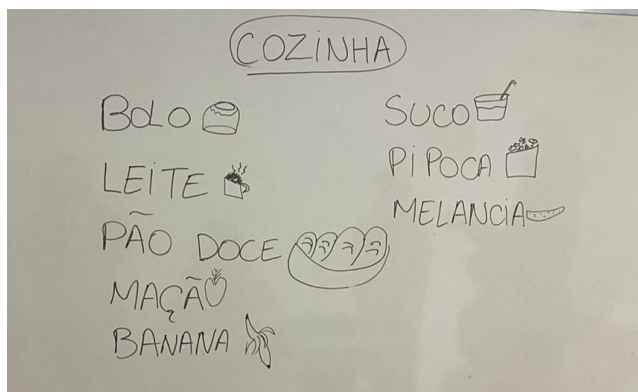 COZINHA
BOLO
LEITE
PÃO DOCE
MAÇÃ
BANANA
SUCO
PIPOCA
MELANCIA